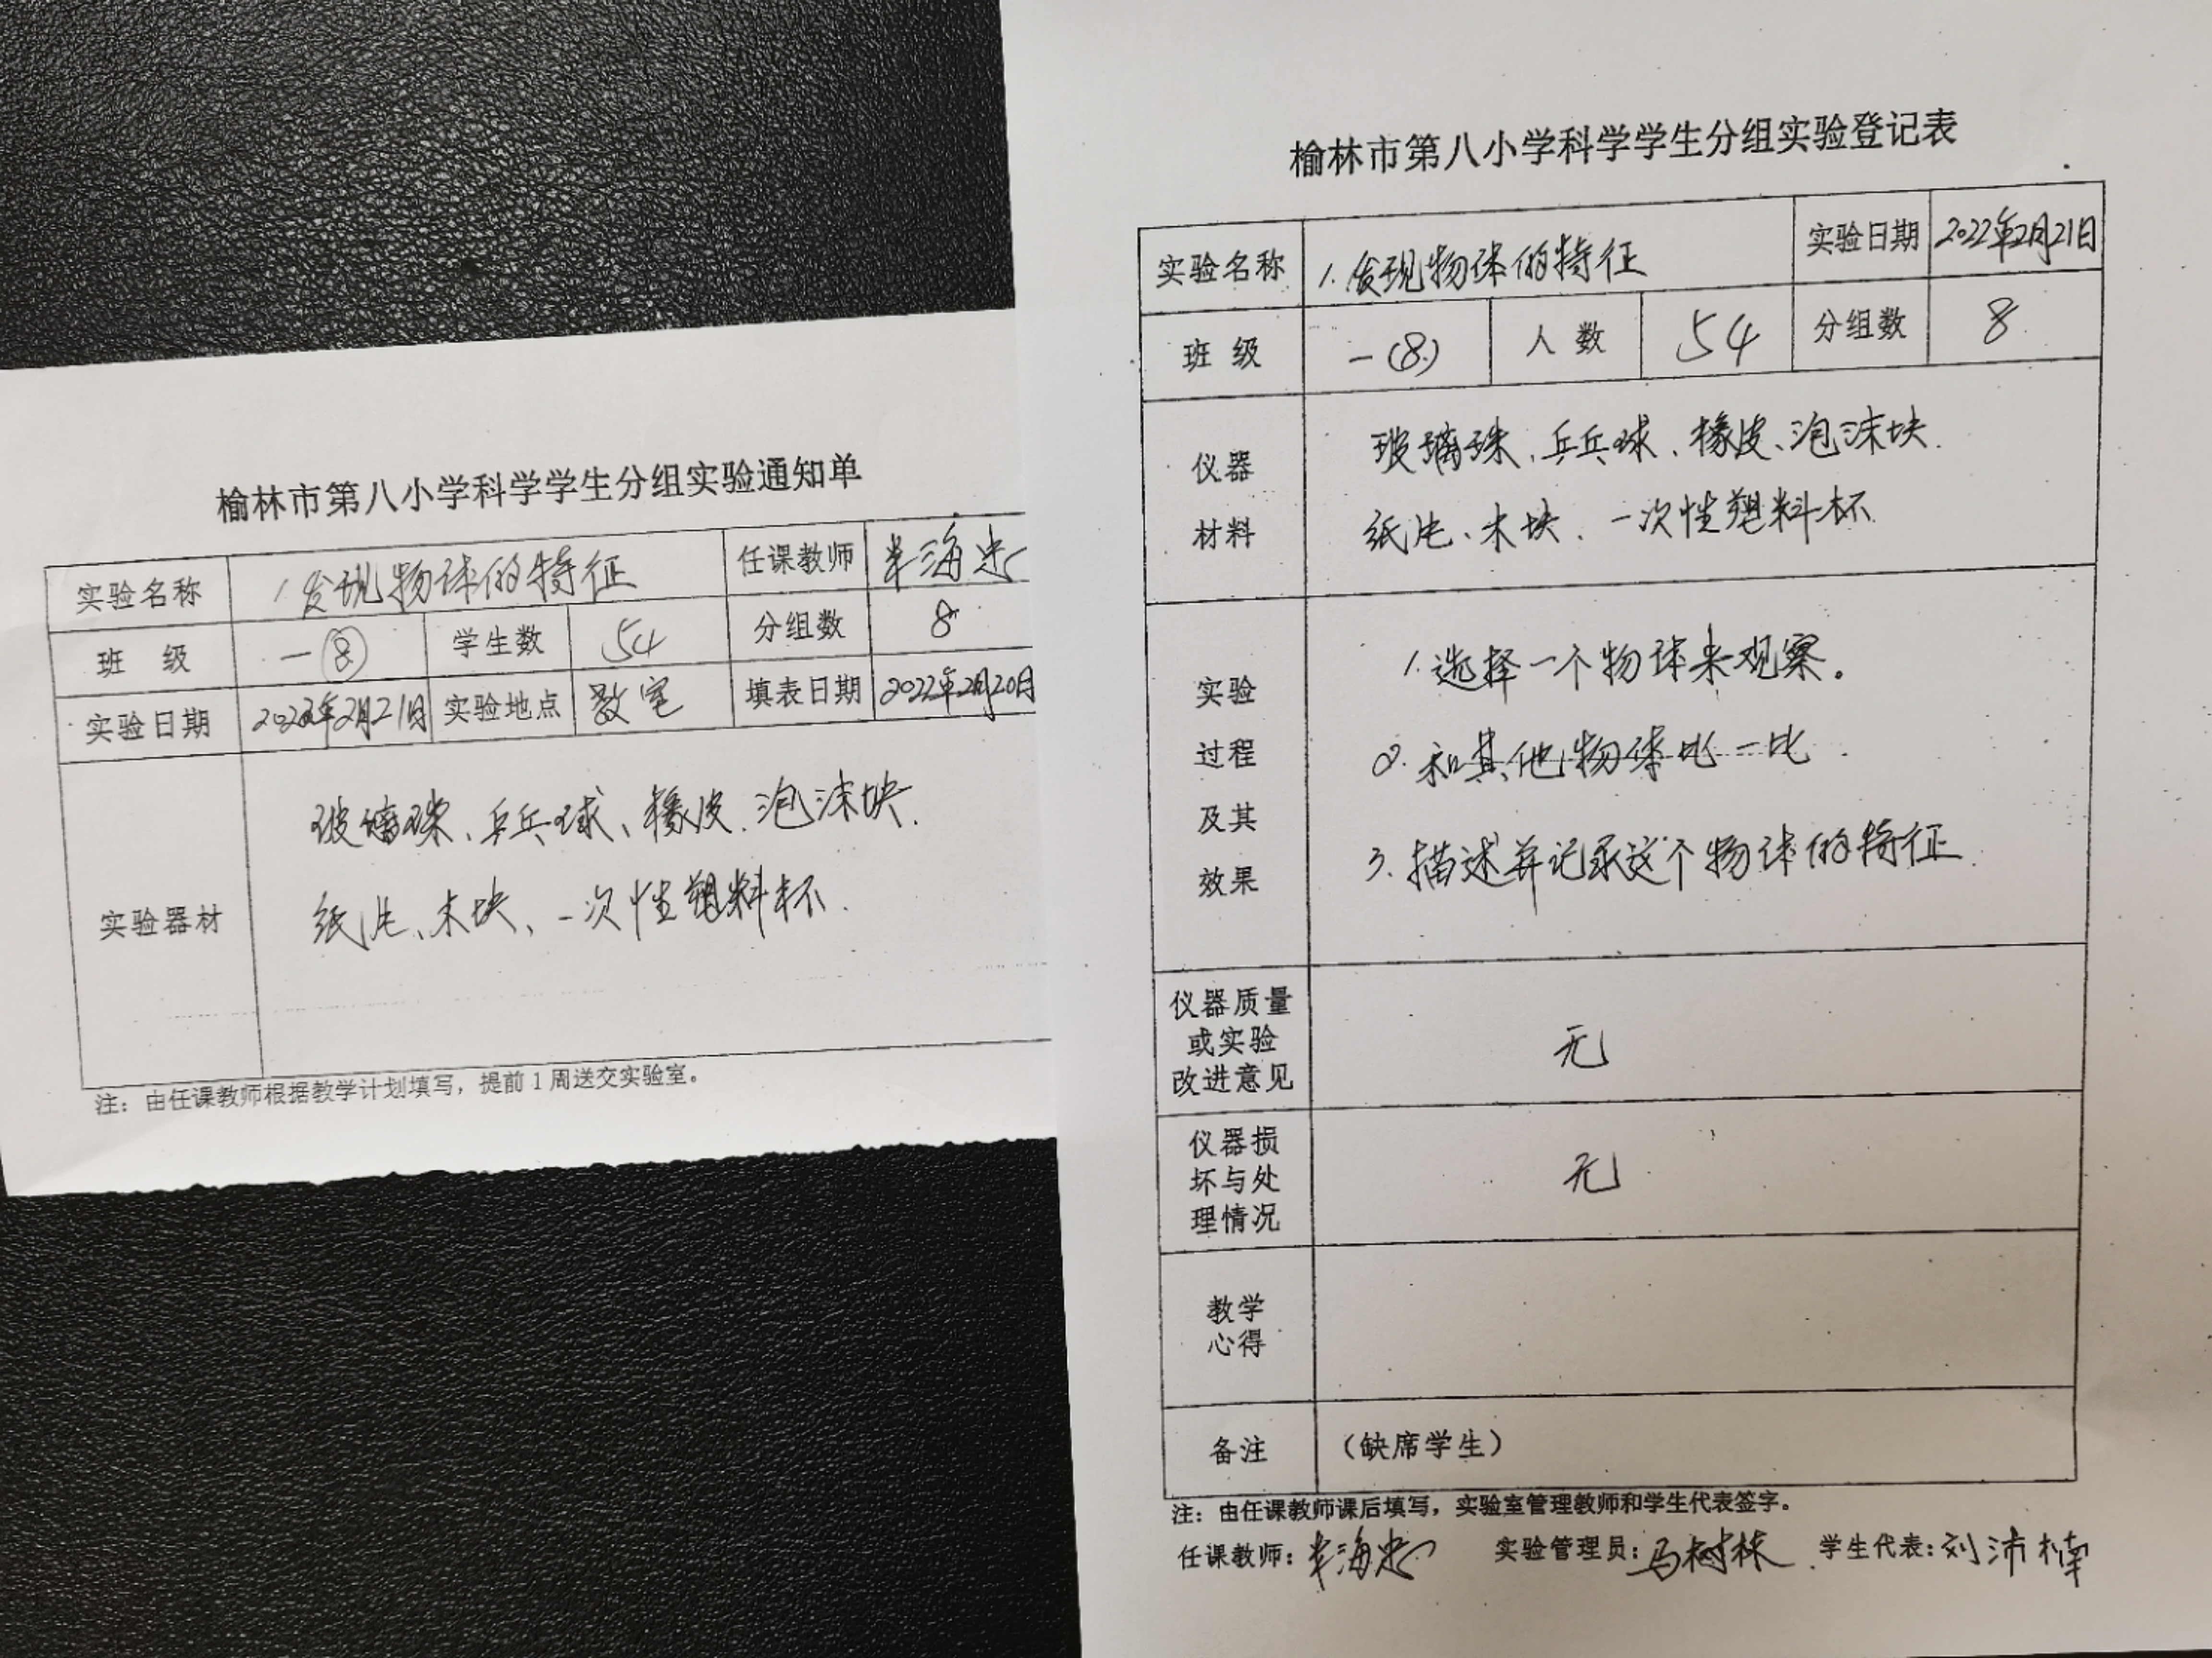 榆林市第八小学科学学生分组实验通知单
实验名称 1.发现物体的特征 任课教师 海忠
班 级 一(8) 学生数 54 分组数 8
实验日期 2022年2月21日 实验地点 教室 填表日期 2022年2月20日
实验器材
玻璃珠、乒乓球、橡皮、泡沫块.
纸片、木块、一次性塑料杯.
注：由任课教师根据教学计划填写，提前1周送交实验室。
榆林市第八小学科学学生分组实验登记表
实验名称 1.发现物体的特征 实验日期 2022年2月21日
班 级 一(8) 人 数 54 分组数 8
仪器
材料
玻璃珠、乒乓球、橡皮、泡沫块.
纸片、木块、一次性塑料杯
实验
过程
及其
效果
1.选择一个物体来观察。
2.和其他物体比一比.
3.描述并记录这个物体的特征.
仪器质量
或实验
改进意见
无
仪器损
坏与处
理情况
无
教学
心得
备注 （缺席学生）
注：由任课教师课后填写，实验室管理教师和学生代表签字。
任课教师：海忠 实验管理员：马树林 学生代表：刘沛楠